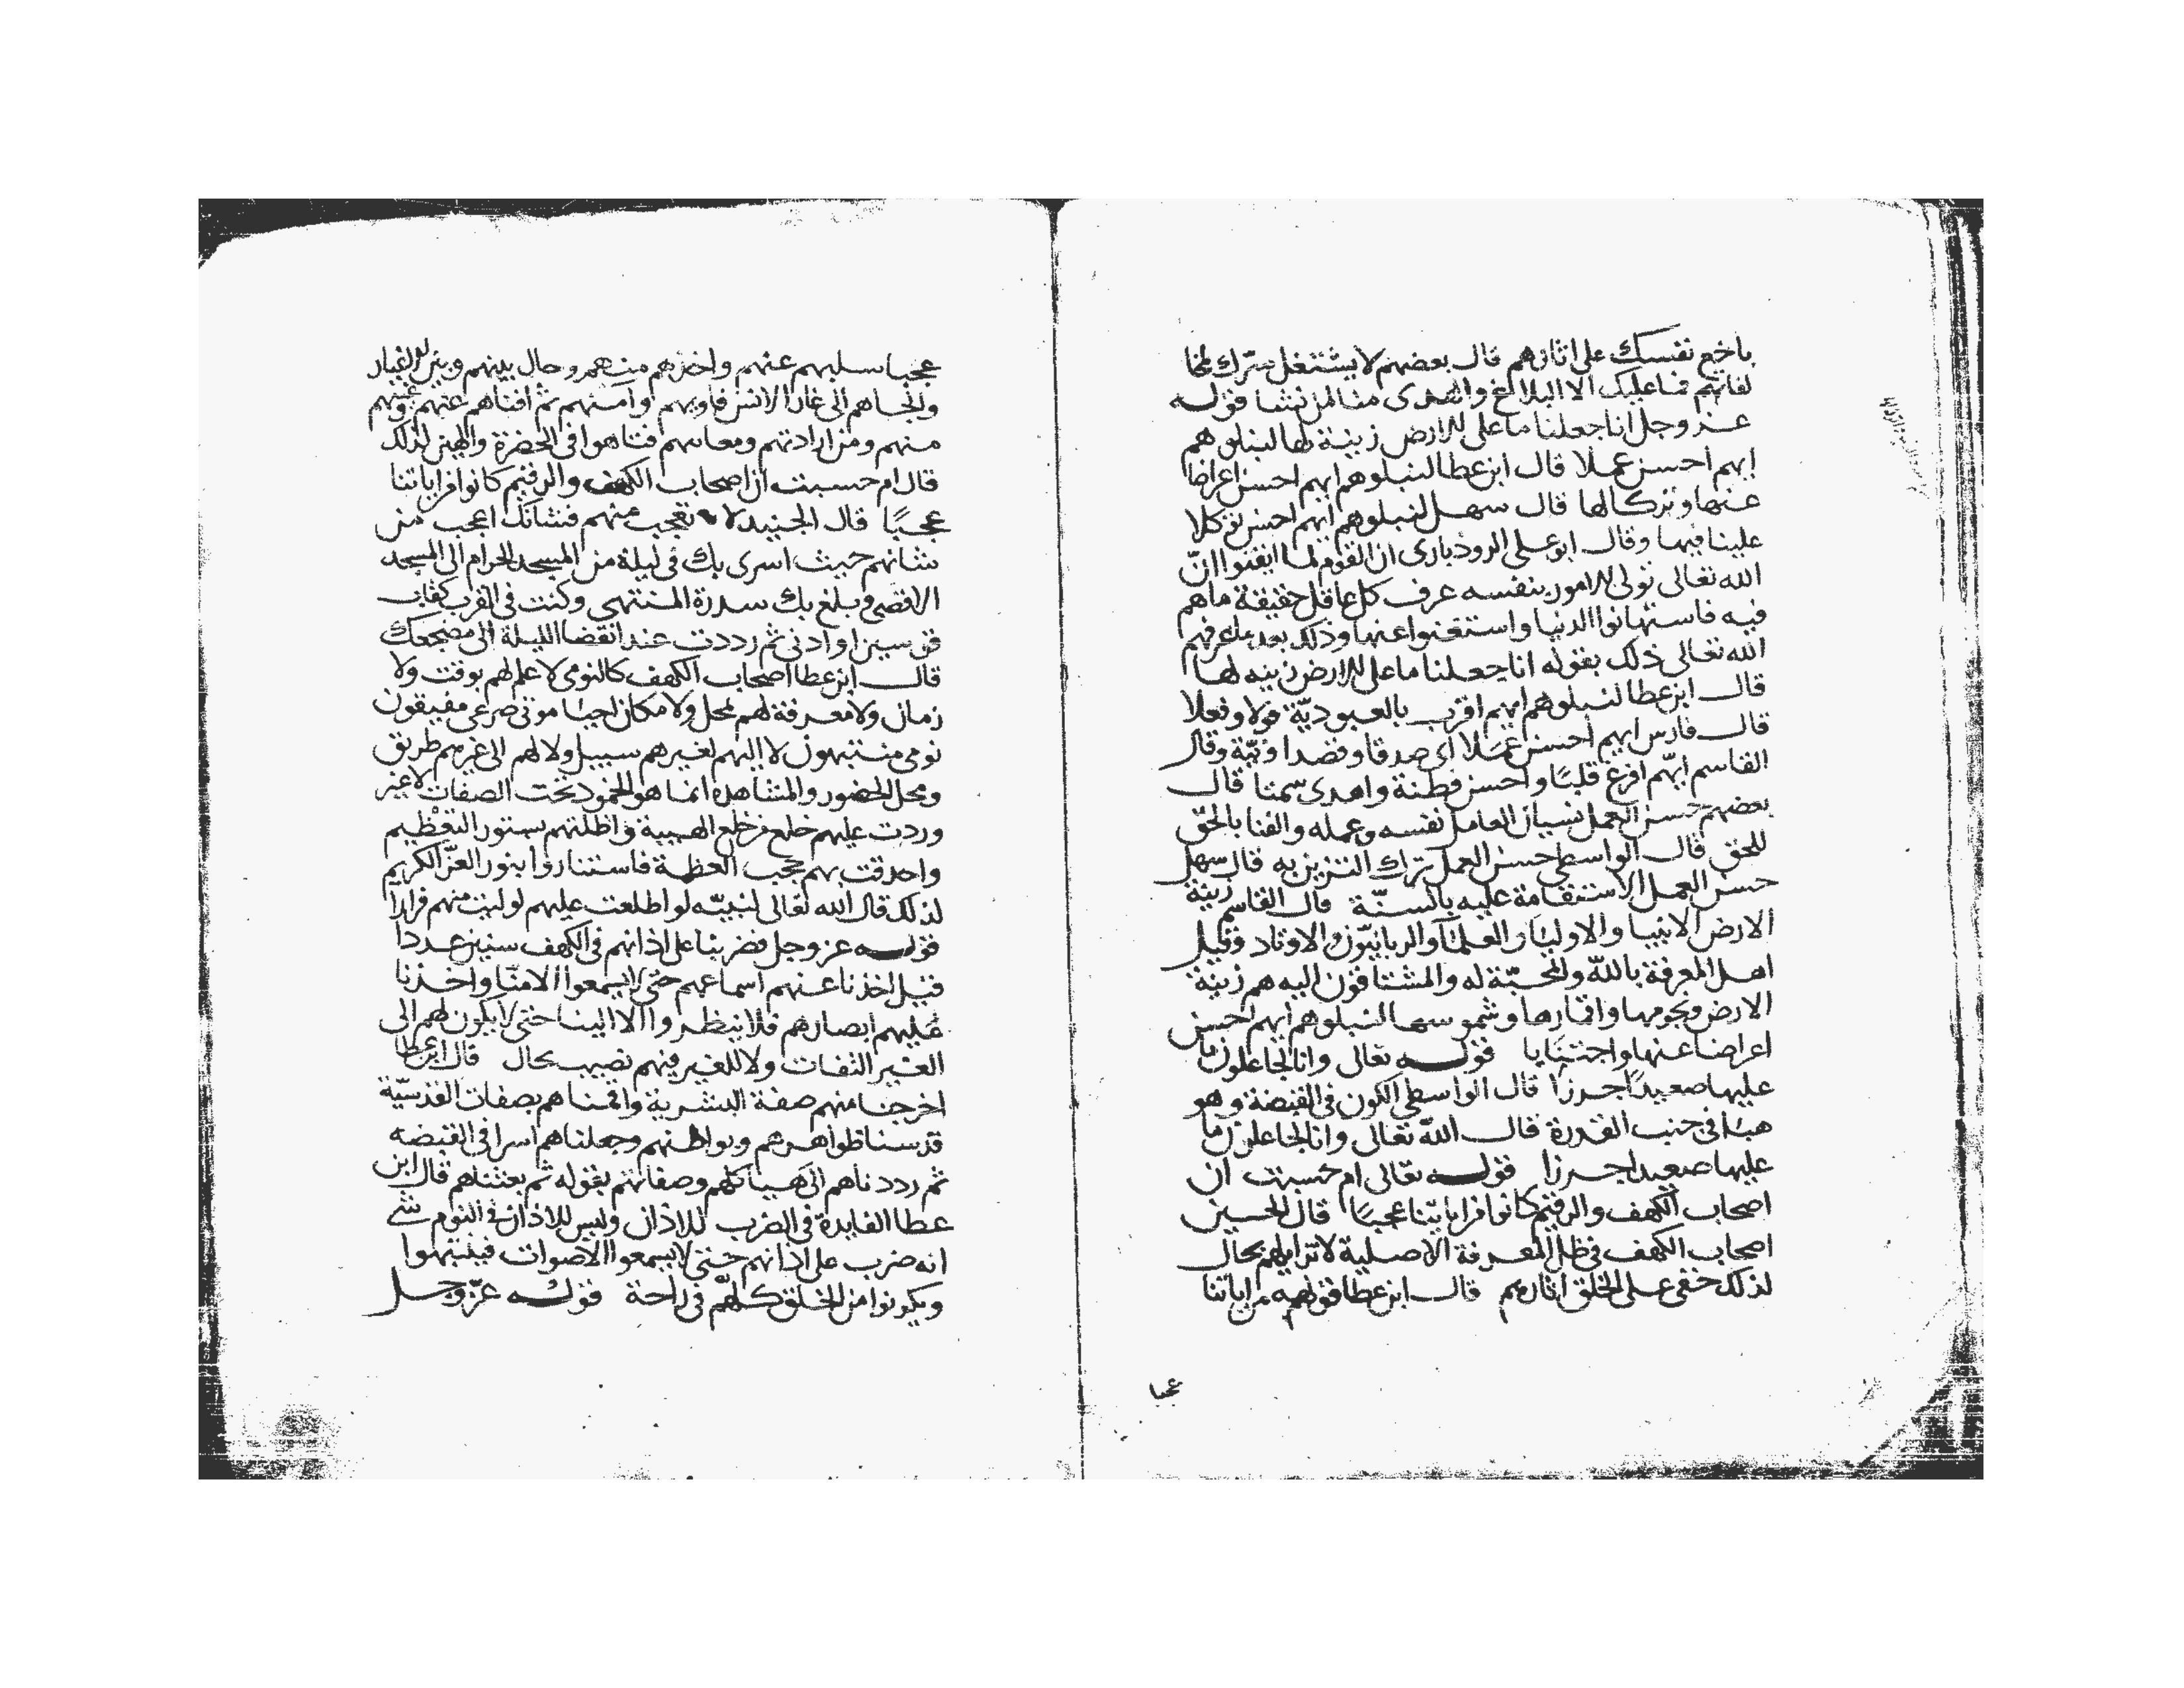 باخع نفسك على اثارهم قال بعضهم لا يشتغل سرك بمخا
لفاتهم فما عليك الا البلاغ والهدى منا لمن نشا قوله
عز وجل انا جعلنا ما على الارض زينة لها لنبلوهم
ايهم احسن عملا قال ابن عطا لنبلوهم ايهم احسن اعراضا
عنها وتركا لها قال سهل لنبلوهم ايهم احسن توكلا
علينا فيها وقال ابو على الروذبارى ان القوم لما ايقنوا انّ
الله تعالى تولى الامور بنفسه عرف كل عاقل حقيقة ما هم
فيه فاستهانوا الدنيا واستغنوا عنها وذلك بعد ما عرفهم
الله تعالى ذلك بقوله انا جعلنا ما على الارض زينه لها
قال ابن عطا لنبلوهم ايهم اقرب بالعبوديّة قولا وفعلا
قال فارس ايهم احسن عملا اى صدقا وقصدا ونيّة وقال
القاسم ايهّم افرغ قلبًا واحسن فطنة واهدى سمتا قال
بعضهم حسن العمل نسيان العامل نفسه وعمله والفنا بالحقّ
للحق قال الواسطى حسن العمل ترك التزين به قال سهل
حسن العمل الاستقامة عليه بالسنّة قال القاسم زينة
الارض الانبيا والاوليا والعلما والربانيّون والاوتاد وقيل
اهل المعرفة بالله والمحبّة له والمشتاقون اليه هم زينة
الارض ونجومها واقمارها وشموسها لنبلوهم ايهم احسن
اعراضا عنها واجتنابا قوله تعالى وانا لجاعلون ما
عليها صعيدًا جرزا قال الواسطى الكون فى القبضة وهو
هبا فى جنب القدرة قال الله تعالى وانا لجاعلون ما
عليها صعيدا جرزا قوله تعالى ام حسبت ان
اصحاب الكهف والرقيم كانوا من اياتنا عجبًا قال الحسين
اصحاب الكهف فى ظل المعرفة الاصلية لا تزايلهم بحال
لذلك خفى على الخلق اثارهم قال ابن عطا قوله من اياتنا
عجبا
عجبا سلبهم عنهم واخذهم منهم وحال بينهم وبين الاغيار
والجاهم الى غار الانس فاويهم وامنهم ثم افناهم عنهم
منهم ومن ارادتهم فتاهوا فى الحضرة والهين لذلك
قال ام حسبت ان اصحاب الكهف والرقيم كانوا من اياتنا
عجبًا قال الجنيد لا تعجب منهم فشانك اعجب من
شانهم حيث اسرى بك فى ليلة من المسجد الحرام الى المسجد
الاقصى وبلغ بك سدرة المنتهى وكنت فى القرب كقاب
قوسين او ادنى ثم رددت عند انقضا الليلة الى مضجعك
قال ابن عطا اصحاب الكهف كالنومى لا علم لهم بوقت ولا
زمان ولا معرفة لهم بمحل ولا مكان احيا موتى صرعى مفيقون
نومى منتبهون لا اليهم لغيرهم سبيل ولا لهم الى غيرهم طريق
ومحل الحضور والمشاهدة انما هو الخمود تحت الصفات لا غير
وردت عليهم خلع من خلع الهيبة واظلتهم ستور التعظيم
واحدقت بهم حجب العظمة فاستناروا بنور العزّ الكريم
لذلك قال الله تعالى لنبيّه لو اطلعت عليهم لوليت منهم فرارا
قوله عز وجل فضربنا على اذانهم فى الكهف سنين عددا
قيل اخذنا عنهم اسماعهم حتى لا يسمعوا الا منّا واخذنا
عليهم ابصارهم فلا ينظروا الا الينا حتى لا يكون لهم الى
الغير التفات ولا للغير فيهم نصيب بحال قال ابن عطا
اخرجنا منهم صفة البشرية واقمناهم بصفات القدسيّة
قدسنا ظواهرهم وبواطنهم وجعلناهم اسرا فى القبضه
ثم رددناهم الى هياكلهم وصفاتهم بقوله ثم بعثناهم قال ابن
عطا الفايدة فى الضرب للاذان وليس للاذان فى النوم شى
انه ضرب على اذانهم حتى لا يسمعوا الاصوات فينتبهوا
ويكونوا من الخلق كلهّم فى راحة قوله عزّ وجل